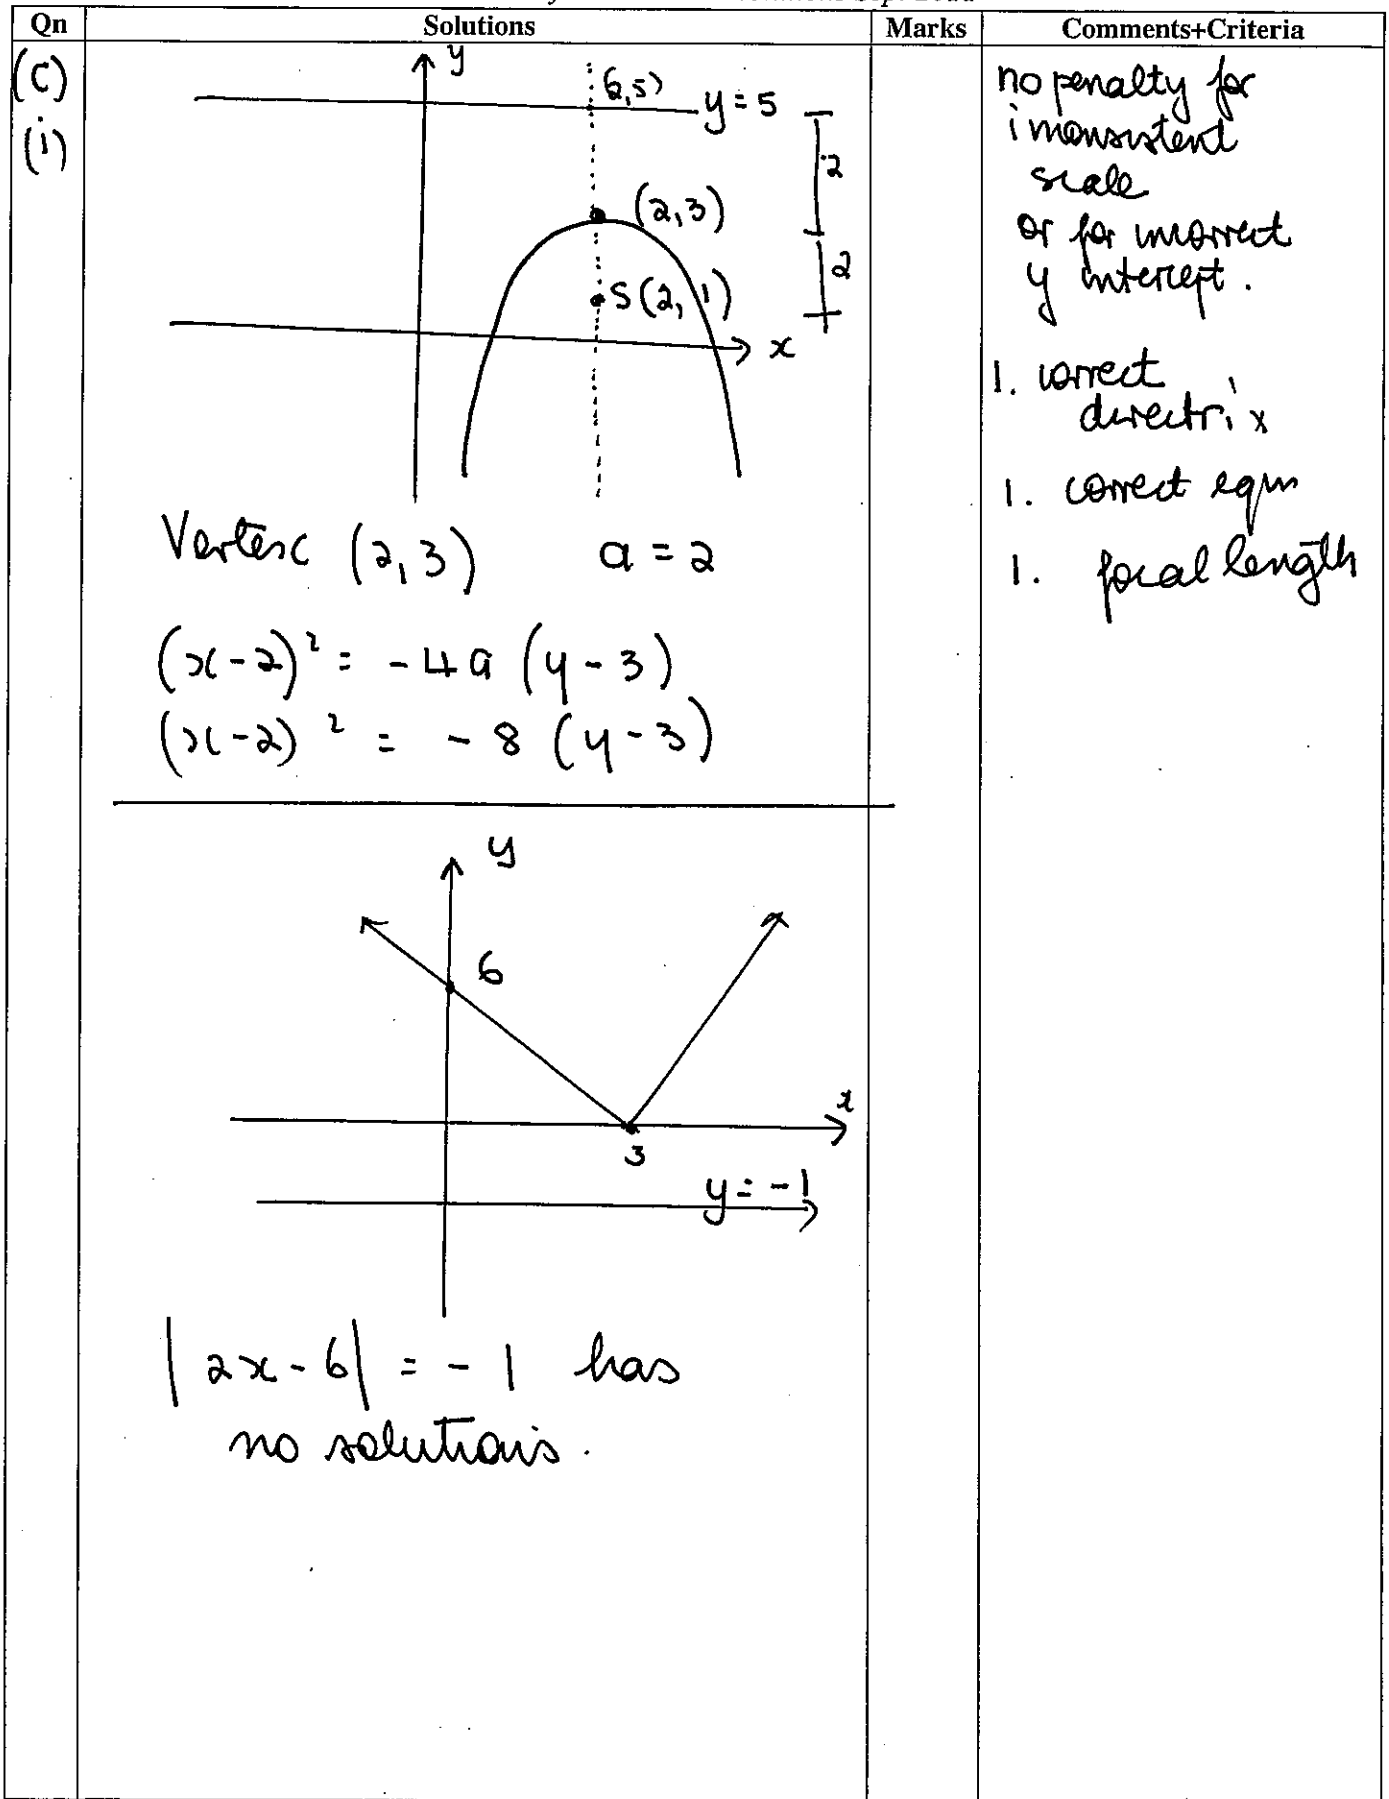 Qn Solutions Marks Comments+Criteria
(C)
(i)
y
(2,5) y = 5
2
(2,3)
2
S(2,1)
x
Vertex (2,3) a = 2
(x-2)² = -4a (y-3)
(x-2)² = -8 (y-3)
no penalty for
inconsistent
scale
or for incorrect
y intercept.
1. correct
directrix
1. correct eqn
1. focal length
y
6
x
3
y = -1
|2x-6| = -1 has
no solutions.